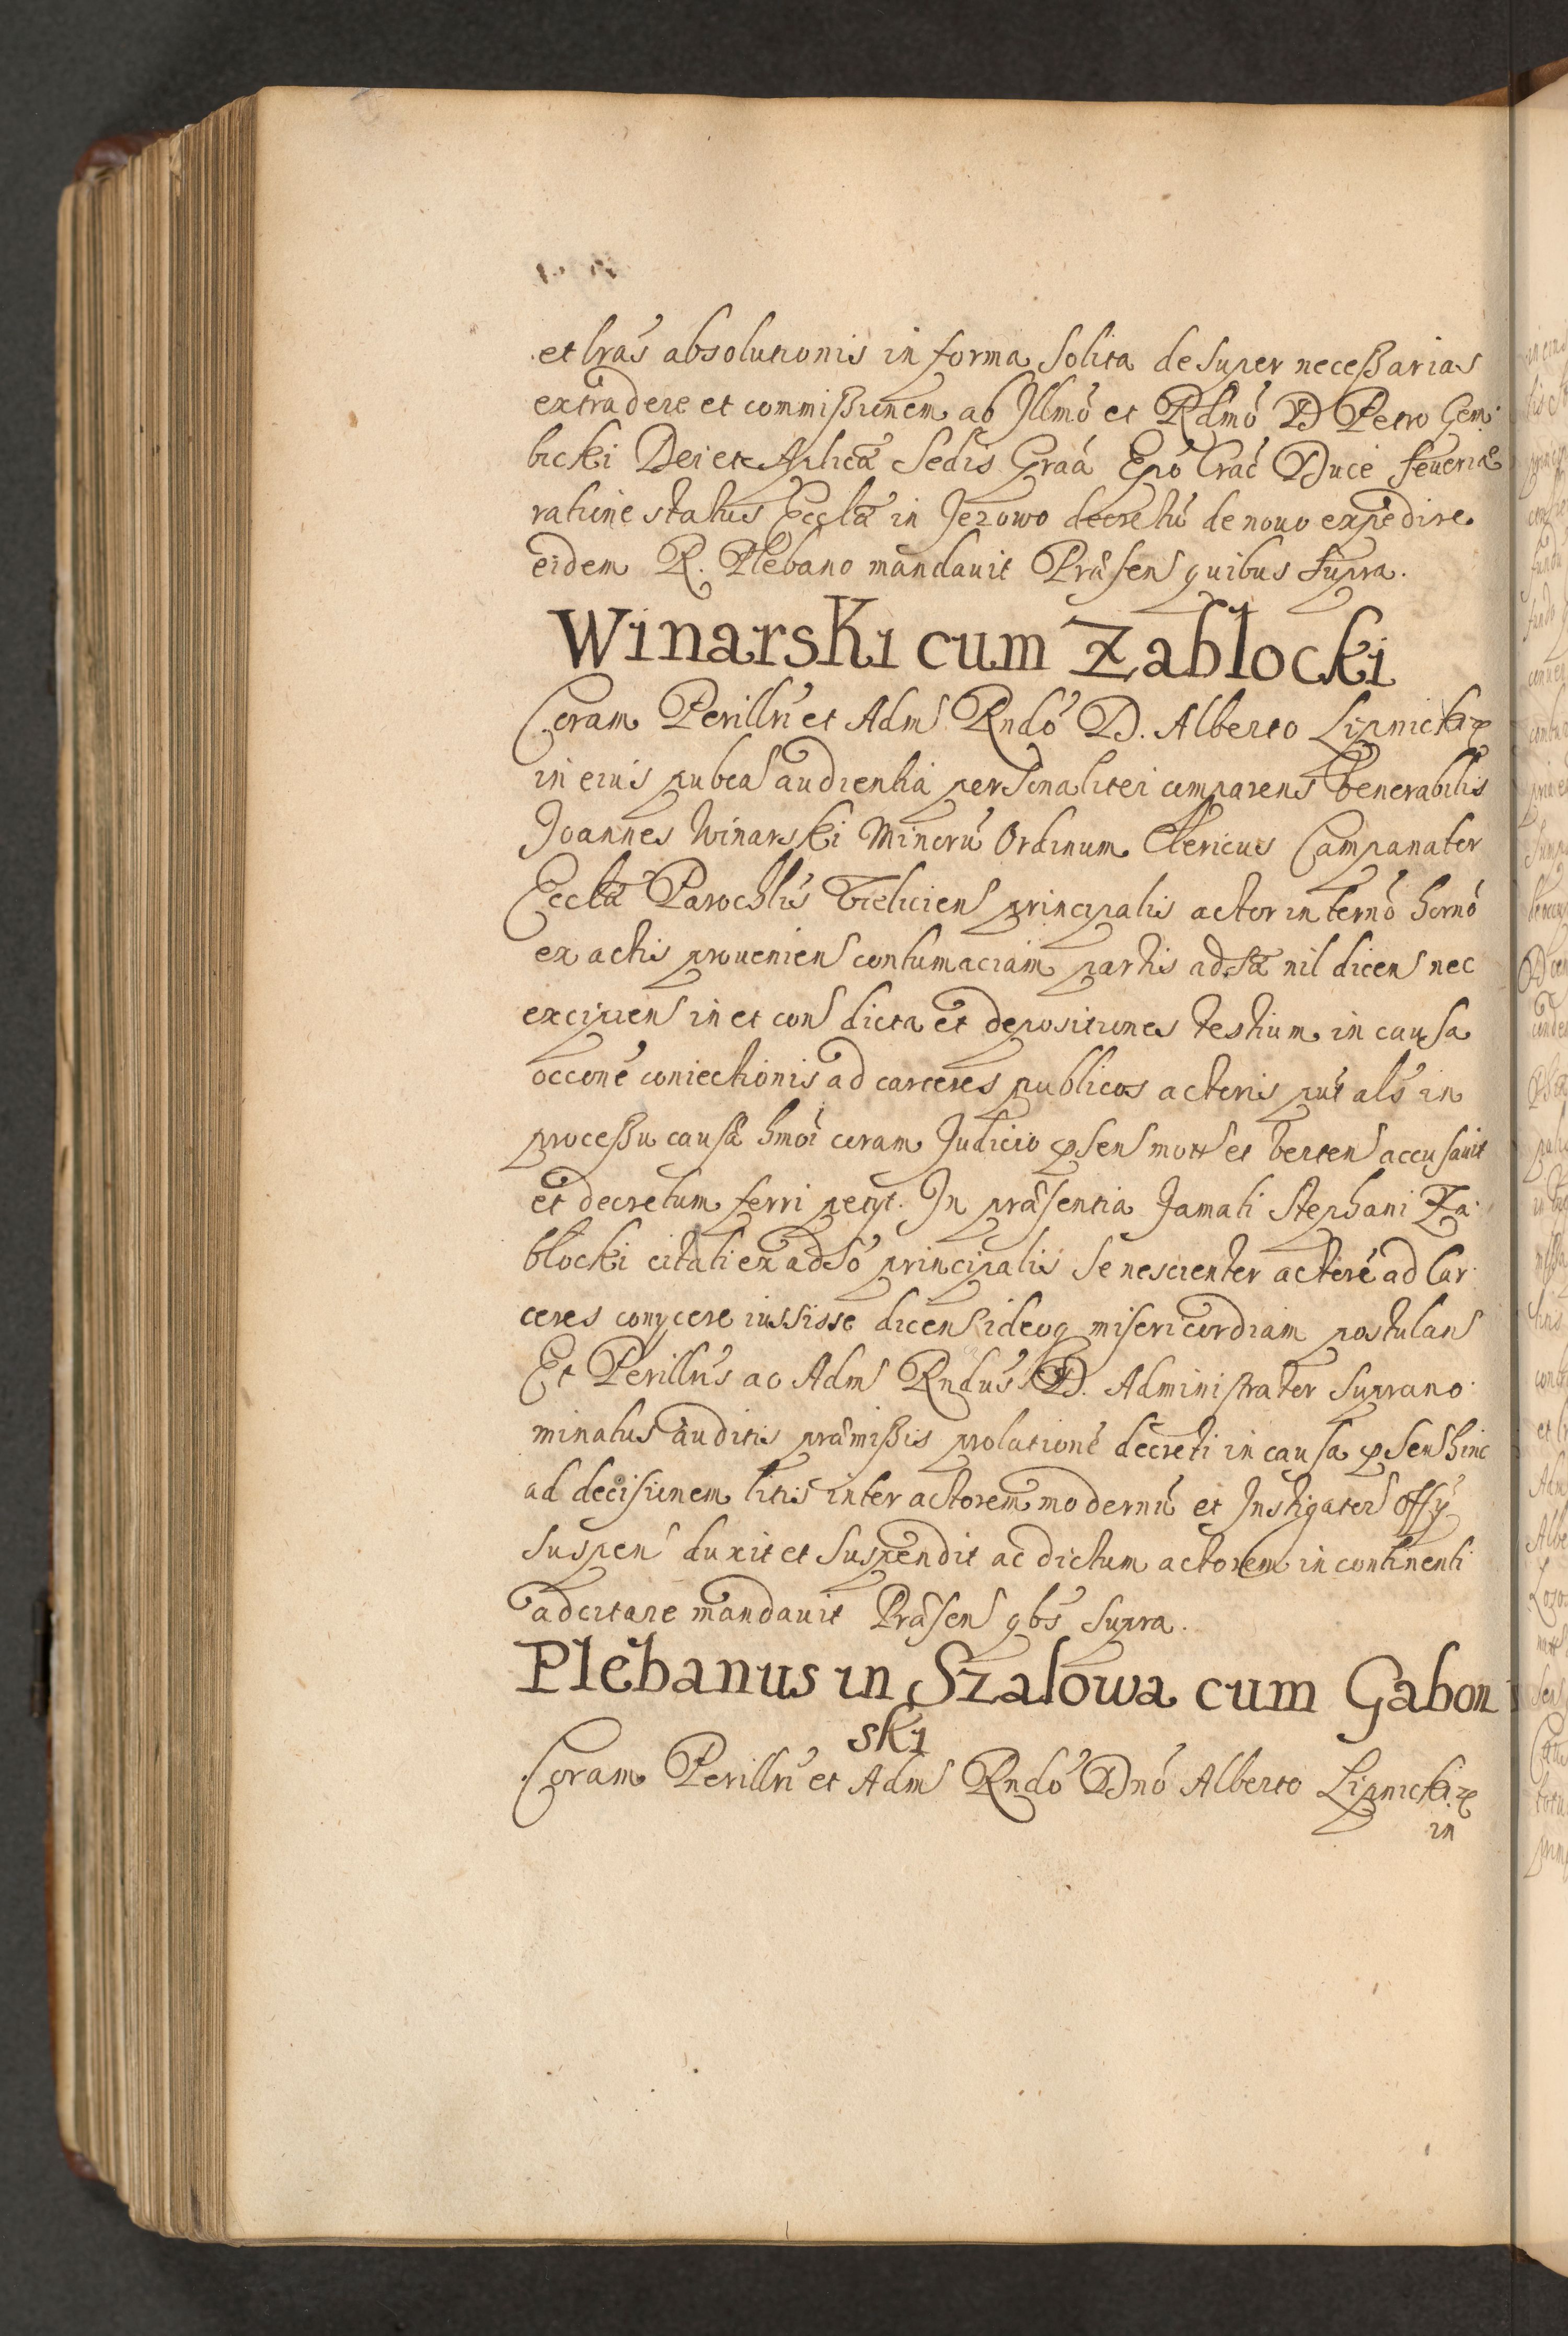 et lras absolutionis in forma solita desuper necessarias
extradere et commissionem ab Illmo et Rdmo D Petro Gem-
bicki Dei et Aplica Sedis Graa Epo Crac Duce Seueriæ
ratione status Eccla in Jezowo decretu denouo expedire
eidem R. Plebano mandauit Præsen quibus supra.
Winarski cum Zablocki
Coram Perillri et Adm Rndo D. Alberto Lipnicki
in eius pubca audientia personaliter comparens Venerabilis
Joannes Winarski Minoru Ordinum Clericus Campanator
Eccla Parochlis Vieliciens principalis actor in termo horno
ex actis prouenien contumaciam partis adsa nil dicens nec
excipien in et con dicta et depositiones testium in causa
occone coniectionis ad carceres publicos actoris put als in
processu causa hmoi coram Judicio psen mott et verten accusauit
et decretum ferri petyt. In præsentia Famati Stephani Za-
blocki citati ex adso principalis se nescienter actore ad Car-
ceres conycere iussisse dicen ideoq misericordiam postulans
Et Perillris ac Adm Rndus D. Administrator Suprano-
minatus auditis præmissis prolatione decreti in causa psen hinc
ad decisionem litis inter actorem modernu et Instigator Offy
suspen duxit et suspendit ac dictum actorem incontinenti
adcitare mandauit Præsen qbs supra.
Plebanus in Szalowa cum Gabon
ski
Coram Perillri et Adm Rndo Dno Alberto Lipnicki
in